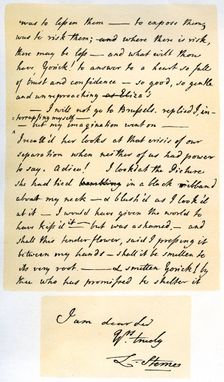 was to lessen them — to expose them,
was to risk them; and where there is risk,
there may be loss — and what wilt thou
have Yorick! to answer to a heart so full
of trust and confidence — so good, so gentle
and unreproaching as Eliza's
— I will not go to Brussels, replied I, in-
terrupting myself —
— but my imagination went on —
I recall'd her looks at that crisis of our
separation when neither of us had power
to say, Adieu! I look'd at the Picture
she had tied in a black ribband
about my neck — & blush'd as I look'd
at it — I would have given the world to
have kiss'd it — but was ashamed, — and
shall this tender flower, said I pressing it
between my hands — shall it be smitten to
its very root — & smitten Yorick! by
thee who has promised to shelter it
I am dear Sir
Yrs truely
L. Sterne